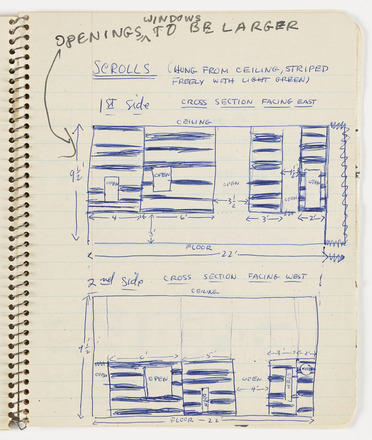 WINDOWS
OPENINGS ^ TO BE LARGER
SCROLLS (HUNG FROM CEILING, STRIPED
FREELY WITH LIGHT GREEN)
1st Side CROSS SECTION FACING EAST
CEILING
9 1/2'
OPEN
OPEN
OPEN
OPEN
4'
6'
3 1/2
3'
2'
3'
FLOOR
22'
2nd Side CROSS SECTION FACING WEST
CEILING
9 1/2'
6'
5'
OPEN
OPEN
OPEN
4'
FLOOR - 22'